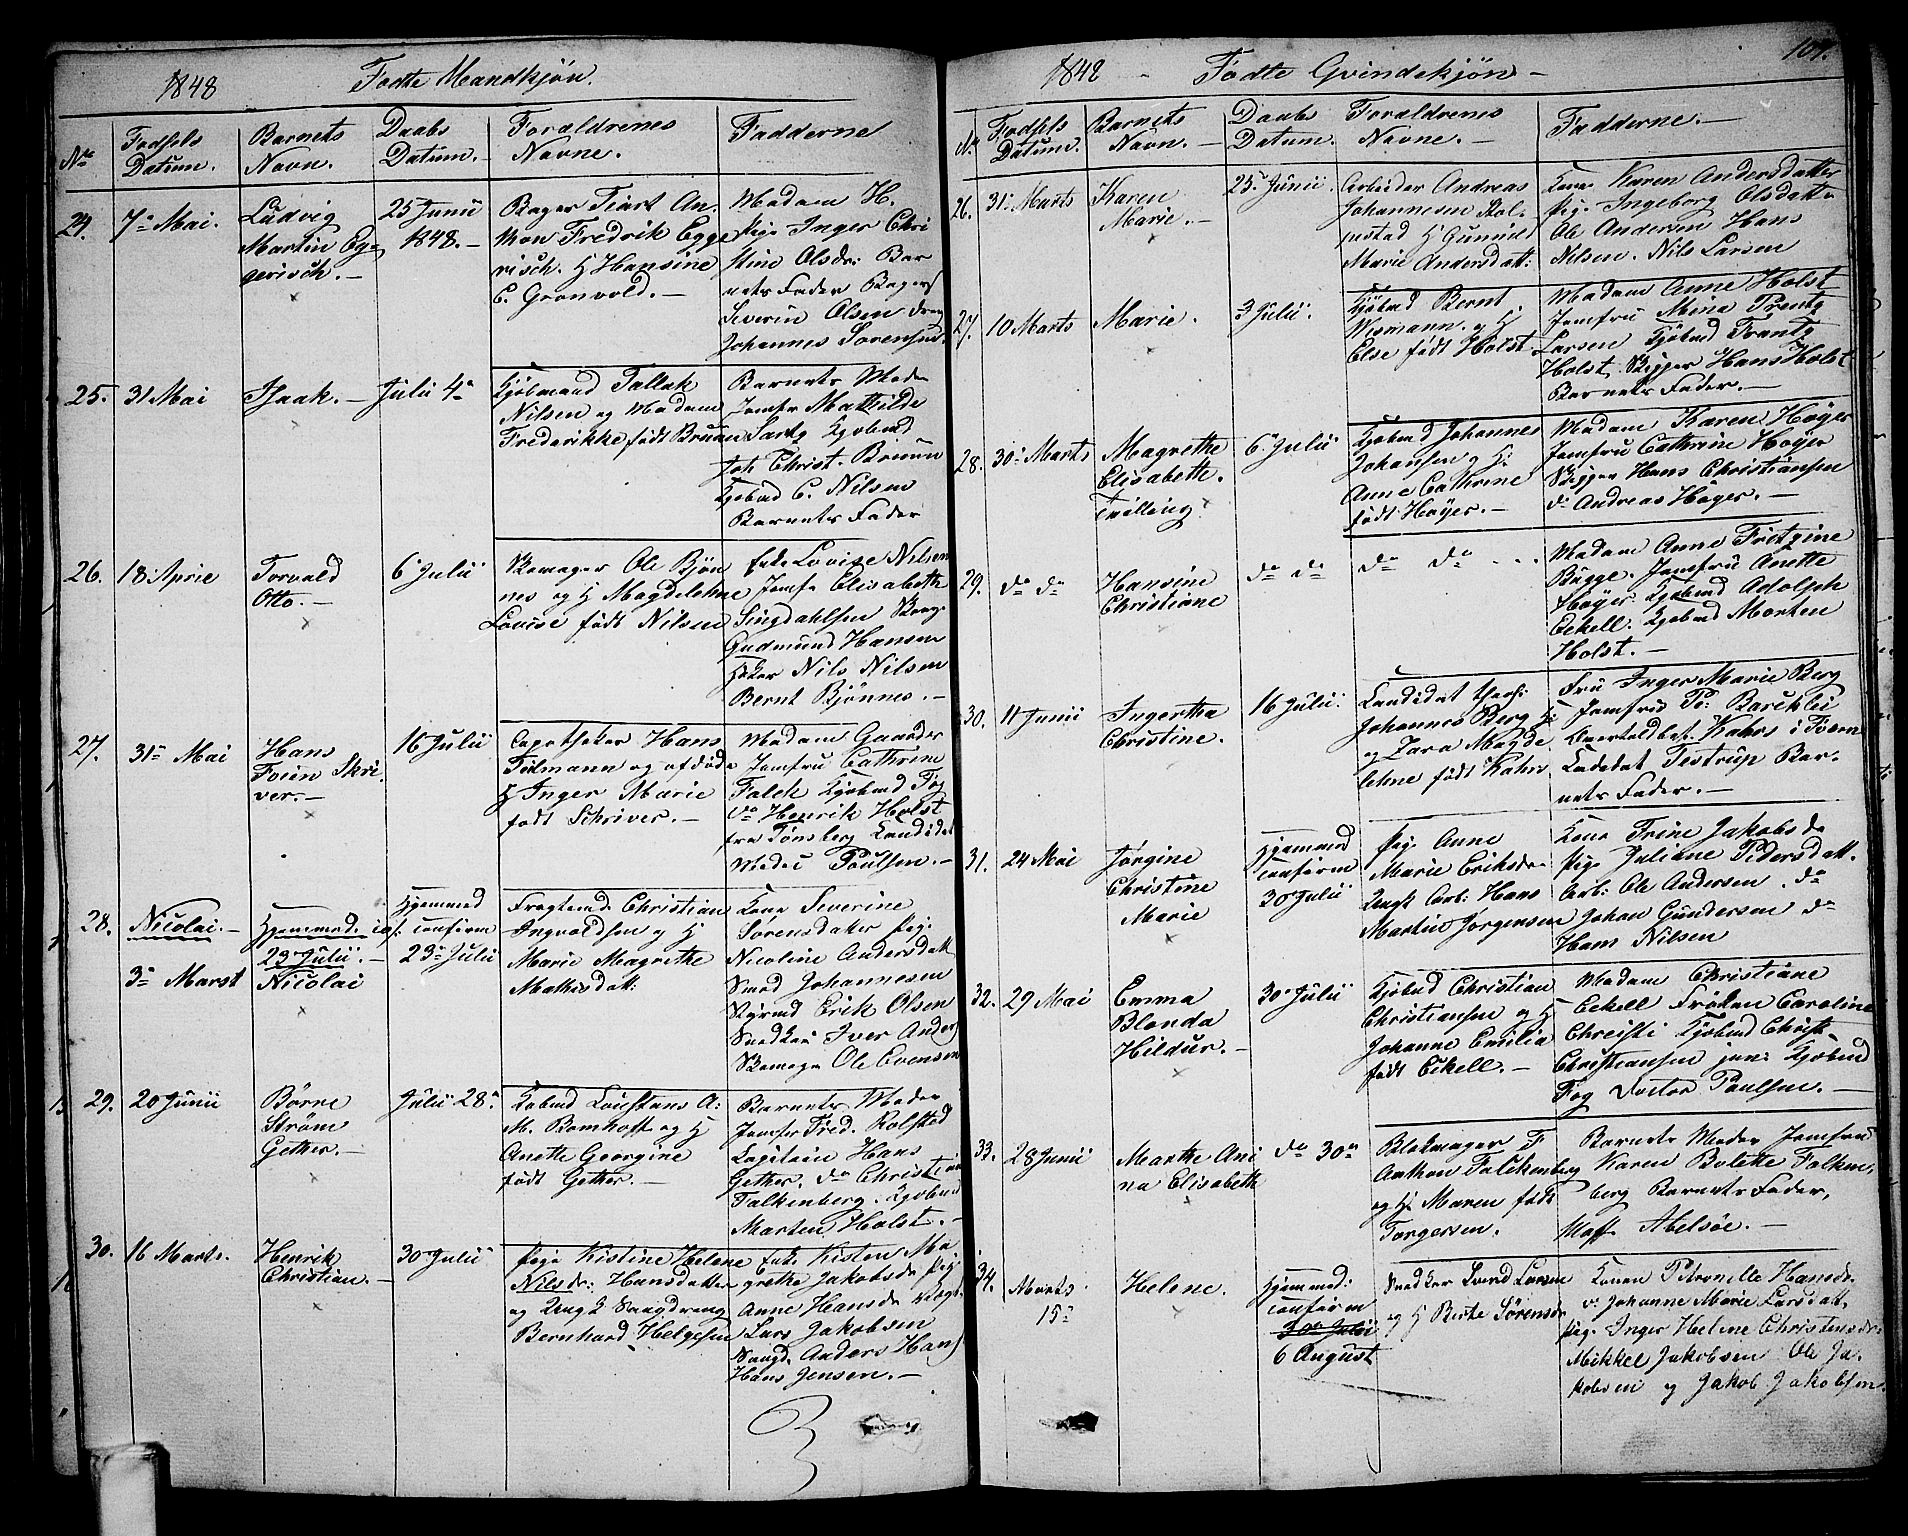 1848 Fødte Mandkjøn.
No
Fødsels Datum.
Barnets Navn.
Daabs Datum.
Forældrenes Navne.
Fadderne
24. 7de Mai.
Ludvig
Martin Eg-
gerisch.
25 Junii
1848.
Bager Tiart An-
thon Fredrik Egge
risch. Hansine
C. Grønvold.
Madam H.
Pige Inger Chri
stine Olsdr: Bar
nets Fader Bager
Severin Olsen
Johannes Sørensen.
25. 31 Mai
Isaak.
Julii 4de
Kjøbmand Tallak
Nilsen og Madam
Frederikke født Bruun
Barnets Moder
Jomfr Mathilde
Lartz Kjøbmd
Joh Christ. Bruun
Kjøbmd C. Nilsen
Barnets Fader
26. 18 Aprie
Torvald
Otto.
6 Julii
Skomager Ole Bjøn
nes og H Magdelehne
Lovise født Nilsen
Enke Lovise Nilsen
Jomfr Elisabethe
Lingdahlsen
Gudmund Hansen
Nils Nilsen
Bernt Bjønnes.
27. 31te Mai
Hans
Foien Skri-
ver.
16 Julii
Apotheker Hans
Tilmann og afdøde
H Inger Marie
født Schriver.
Madam Gaarder
Jomfru Cathrine
Falck Kjøbmd Fog
do Henrik Holst
fra Tønsberg Candidat
Medec Poulsen.
28. Nicolai.
3de Marst
Hjemmed.
23 Julii.
Nicolai
Hjemmed
confirm
23de Julii
Fragtemd Christian
Ingvaldsen og H
Marie Magrethe
Mathisdatt:
Kone Severine
Sørensdatter Pige
Nicoline Andersdatt
Smed Johannesen
Styrmd Erik Olsen
Snedker Iver Anders
Skomagr Ole Evensen
29. 20 Junii
Børre
Strøm
Gether.
Julii 28de
Købmd Constans A:
M. Bomhoff og H
Anette Georgine
født Gether.
Barnets Moder
Jomfr Fred. Rolfsted
Capitein Hans
Gether, do Christian
Falkenberg. Kjøbmd
Marten Holst.
30. 16 Marts.
Henrik
Christian.
30 Julii
Pige Kistine Helene
Nilsdr: Hansdatter
og Ungk Saugdreng
Bernhard Helgesen
Enk. Kisten Ma
grethe Jakobsdr Pig:
Anne Hansdr
Lars Jakobsen
Saugd. Anders Hans
Hans Jensen.
1848 - Fødte Qvindekjøn -
107.
No
Fødsels Datum.
Barnets Navn.
Daabs Datum.
Forældrenes Navne.
Fadderne.
26. 31te Marts
Karen
Marie.
25 Junii.
Arbeider Andreas
Johannesen Rol-
pestad H Gunnild
Marie Andersdatt:
Kone Karen Andersdatter
Pige Ingeborg Olsdatt
Ole Andersen Hans
Nilsen. Nils Larsen
27. 10 Marts
Marie.
3 Julii.
Kjøbmd Bernt
Wismann. og H
Else født Holst.
Madam Anne Holst
Jomfru Mina Trentz
Larsen Kjøbmd Frantz
Holst. Skipper Hans Holst
Barnets Fader.
28. 30te Marts
Magrethe
Elisabethe.
Tvilling.
6 Julii
Kjøbmd Johannes
Johansen og H:
Anne Cathrine
født Høyer.
Madam Karen Høyer
Jomfru Cathrine Høyer
Skipper Hans Christiansen
do Andreas Høyer.
29. do do
Hansine
Christiane
do do
do do
Madam Anne Fritzine
Bugge. Jomfru Anette
Høyer Kjøbmd Adolph
Eckell. Kjøbmd Morten
Holst.
30. 11 Junii
Ingertha
Christine.
16 Julii.
Candidat
Johannes Berg H:
og Zara Magde
lehne født Kahrs
Fru Inger Marie Berg
Jomfru P: Barchlei
Overtoldbet. Kahrs i
Cadidat Testrup Bar-
nets Fader.
31. 24 Mai
Jørgine
Christine
Marie
Hjemmed
confirm
30 Julii
Pige Anne
Marie Eriksdr
Ungk Arb: Hans
Martin Jørgensen
Kone Trine Jakobsdr
Pige Juliane Pedersdatt.
Arb: Ole Andersen. do
Johan Gundersen do
Hans Nilsen
32. 29 Mai
Emma
Blenda
Hildur.
30 Julii
Kjøbmd Christian
Christiansen og H
Johanne Emilia
født Eckell.
Madam Christiane
Eckell Frøken Caroline
Chreisti Kjøbmd Christ
Christiansen jun: Kjøbmd
Fog Doctor Paulsen.
33. 28 Junii
Marthe Ani
na Elisabeth
do 30te
Blokmager F
Anthon Falckenberg
og H. Maren født
Torgersen.
Barnets Moder Jomfru
Karen Bolette Falken,
berg Barnets Fader,
Moss Abelsøe.
34. Marts
15de
Helene.
Hjemmed:
confirm
30te Julii
6 August
Snedker Svend Larsen
og H Berte Sørensdr
Konen Petronelle Hansdr.
do Johanne Marie Larsdatt,
Pige. Inger Helene Christensdr
Mikkel Jakobsen Ole Ja-
kobsen og Jakob Jakobsen.